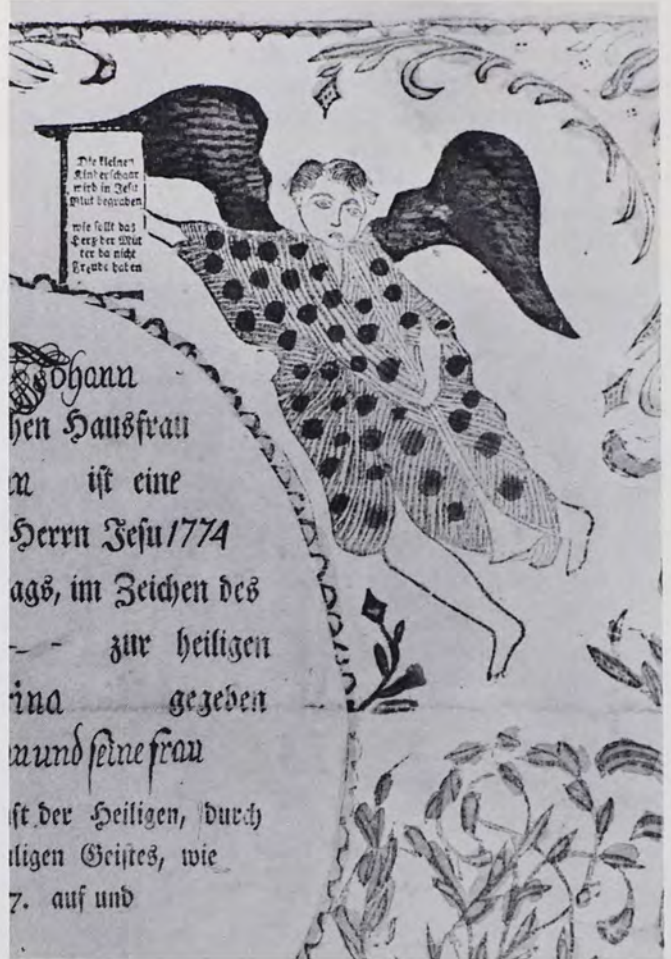 Die kleinen
Kinderschaar
wird in Jesu
Blut begraben
wie sollt das
Herz der Müt
ter da nicht
Freude haben
Johann
hen Hausfrau
ist eine
Herrn Jesu 1774
ags, im Zeichen des
- - zur heiligen
rina gegeben
und seine frau
ft der Heiligen, durch
iligen Geistes, wie
7. auf und